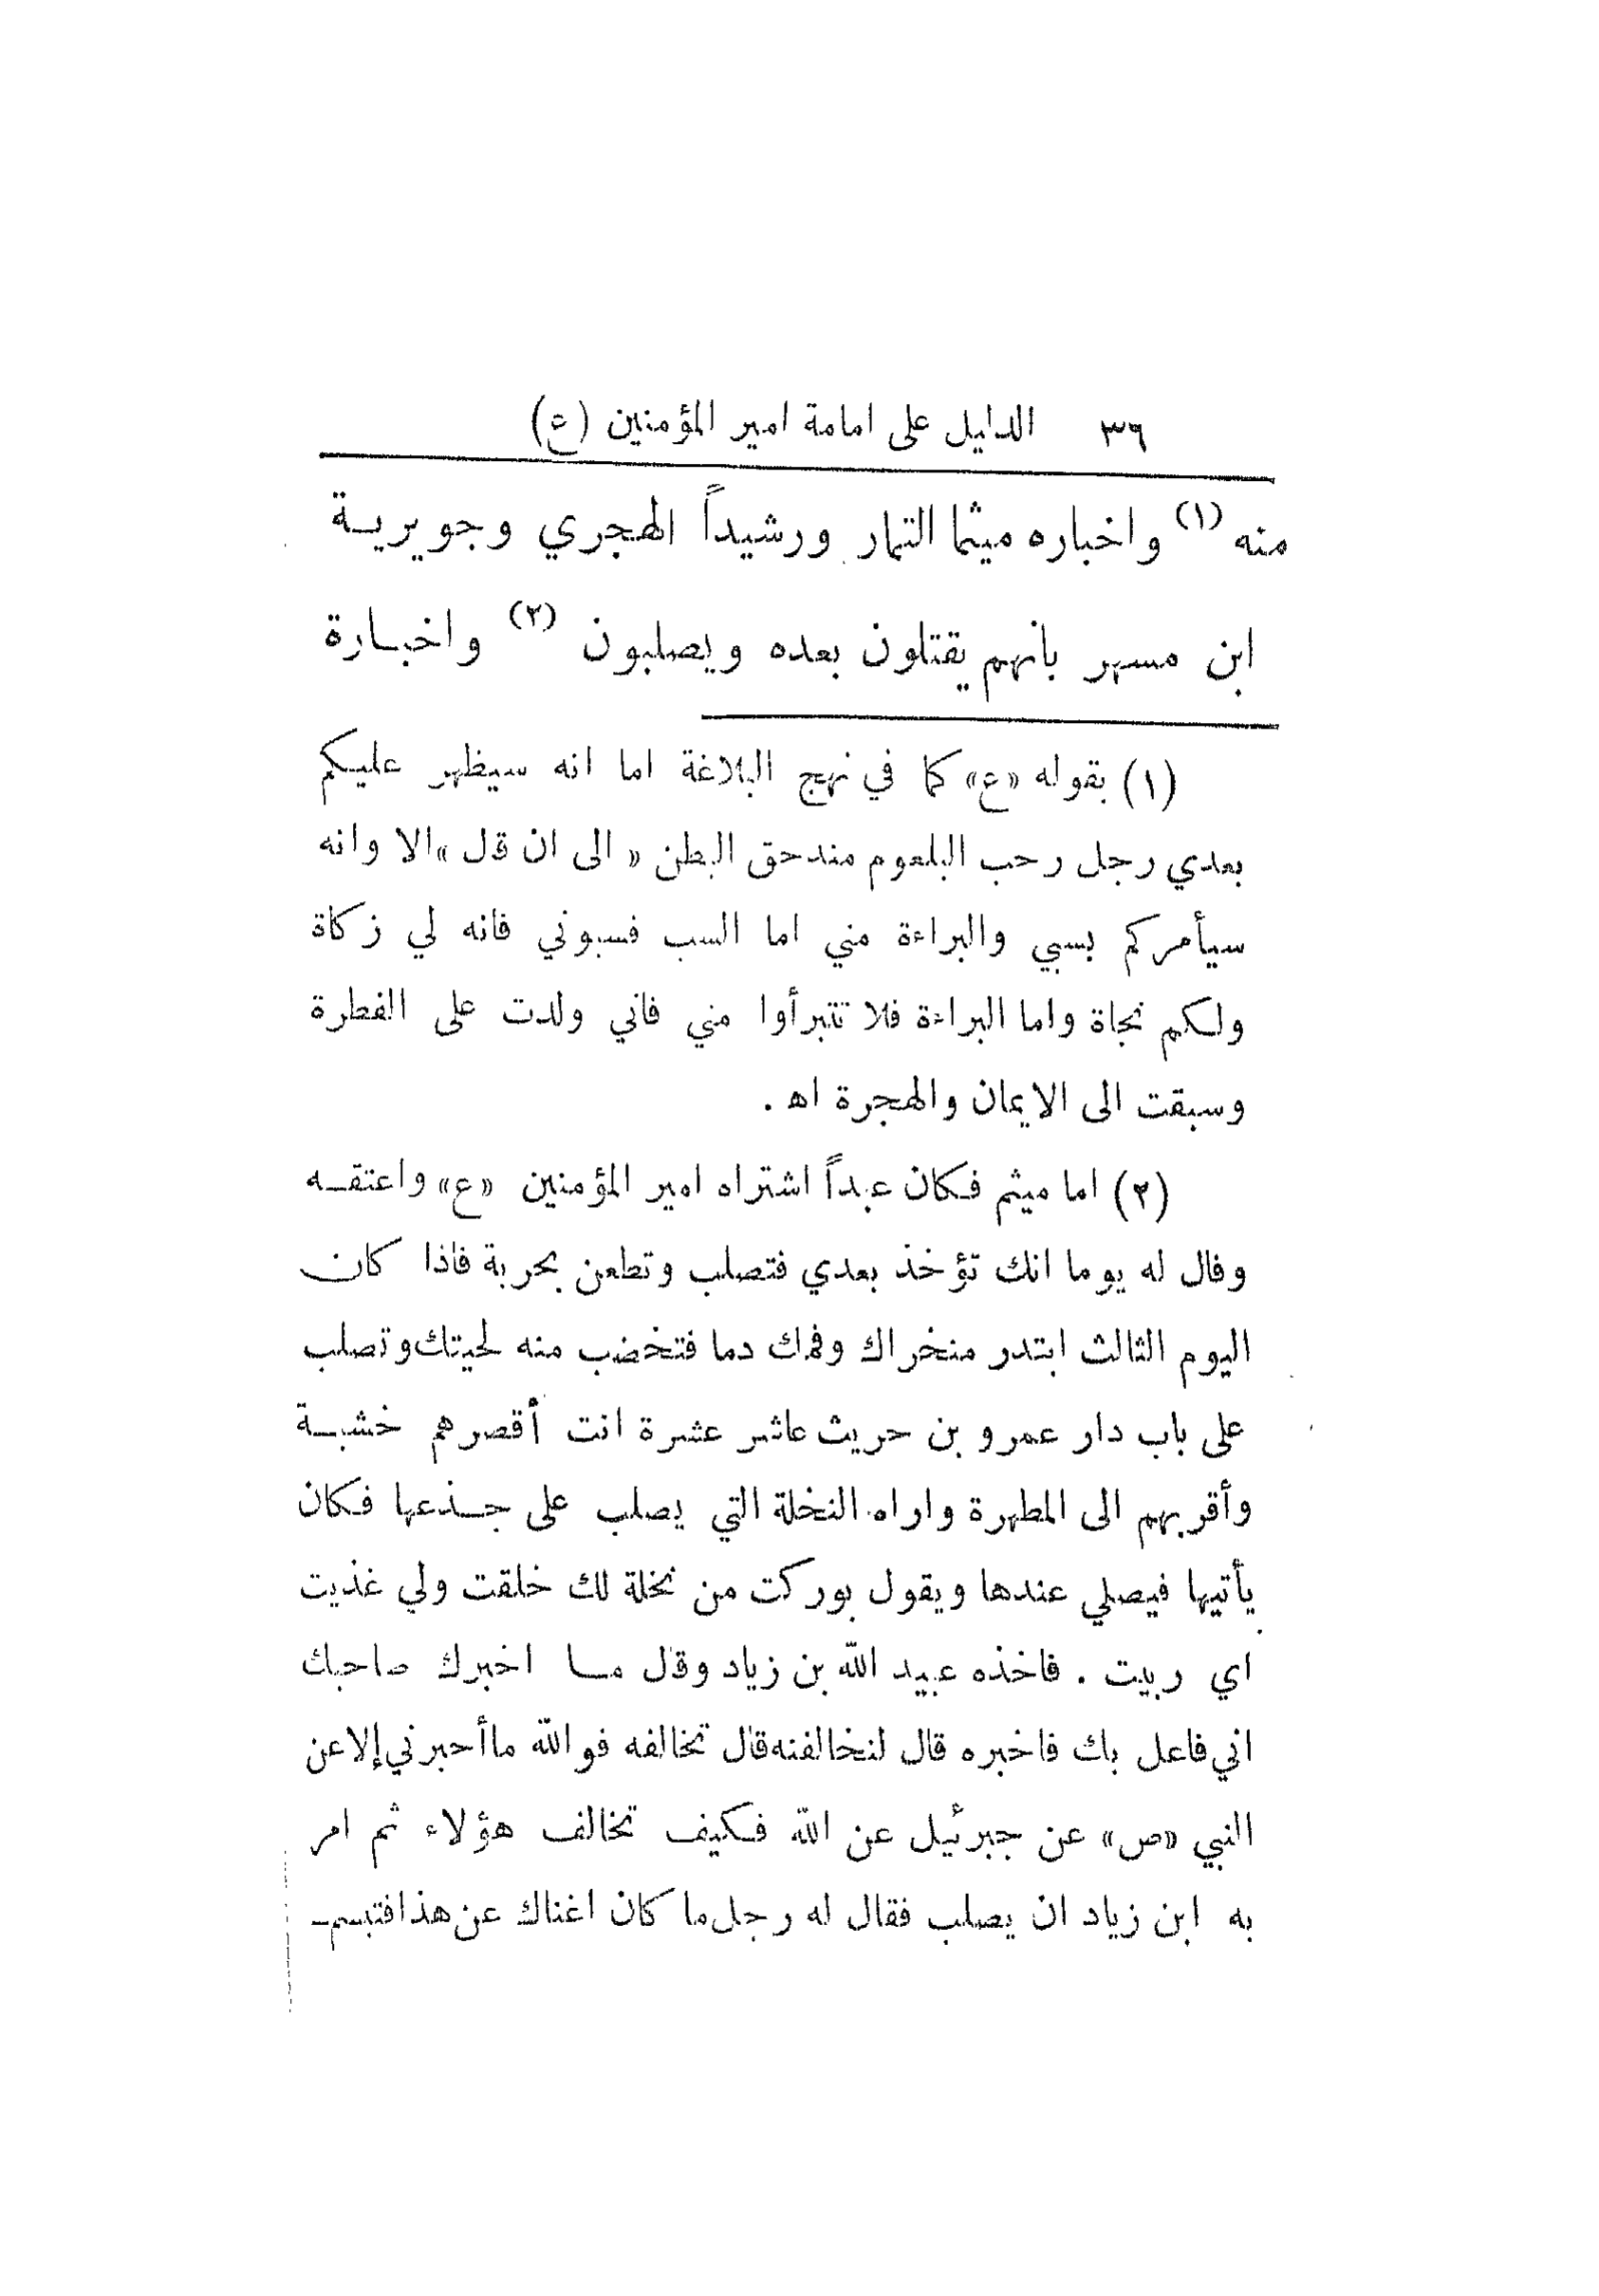 ٣٦ الدليل على امامة امير المؤمنين (ع)
منه (١) واخباره ميثما التمار ورشيداً الهجري وجويرية
ابن مسهر بأنهم يقتلون بعده ويصلبون (٢) واخبارة
(١) بقوله «ع» كما في نهج البلاغة اما انه سيظهر عليكم
بعدي رجل رحب البلعوم مندحق البطن « الى ان قل » الا وانه
سيأمركم بسبي والبراءة مني اما السب فسبوني فانه لي زكاة
ولكم نجاة واما البراءة فلا تتبرأوا مني فاني ولدت على الفطرة
وسبقت الى الايمان والهجرة اه .
(٢) اما ميثم فكان عبداً اشتراه امير المؤمنين «ع» واعتقه
وقال له يوما انك تؤخذ بعدي فتصلب وتطعن بحربة فاذا كان
اليوم الثالث ابتدر منخراك وفمك دما فتخضب منه لحيتك وتصلب
على باب دار عمرو بن حريث عاشر عشرة انت أقصرهم خشبة
وأقربهم الى المطهرة واراه النخلة التي يصلب على جذعها فكان
يأتيها فيصلي عندها ويقول بوركت من نخلة لك خلقت ولي غذيت
اي ربيت . فاخذه عبيد الله بن زياد وقال ما اخبرك صاحبك
اني فاعل بك فاخبره قال لنخالفنه قال تخالفه فوالله ما أحبرني إلا عن
النبي «ص» عن جبرئيل عن الله فكيف تخالف هؤلاء ثم امر
به ابن زياد ان يصلب فقال له رجل ما كان اغناك عن هذا فتبسم-